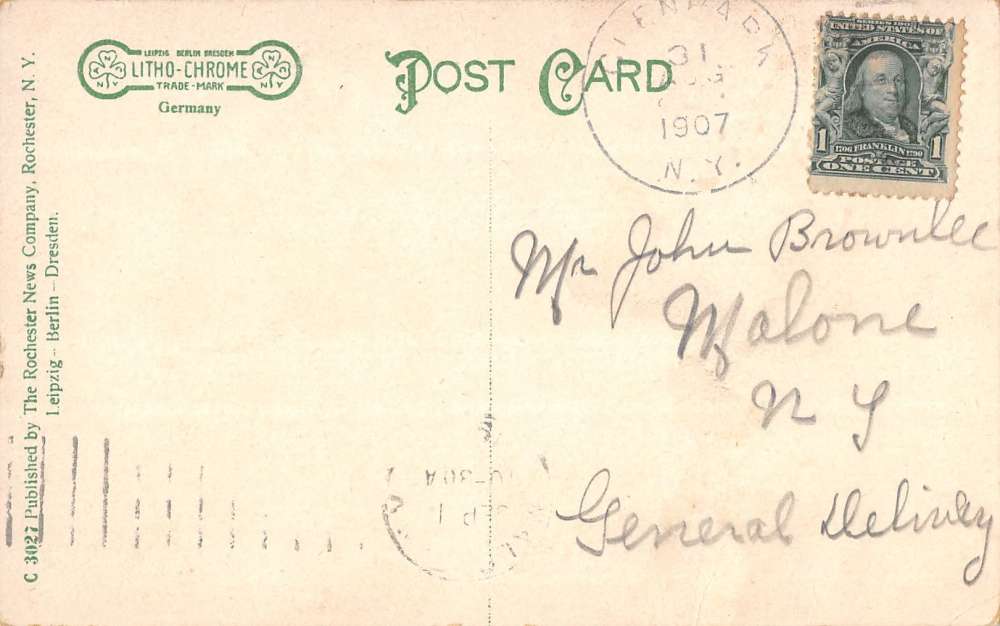 LEIPZIG BERLIN DRESDEN
LITHO-CHROME
TRADE-MARK
Germany
POST CARD
31
1907
N.Y.
SERIES 1902
UNITED STATES OF
AMERICA
1 1706 FRANKLIN 1790 1
POSTAGE
ONE CENT
Mr John Brownlee
Malone
N Y
General Delivery
C 3027 Published by The Rochester News Company, Rochester, N. Y.
Leipzig - Berlin - Dresden.